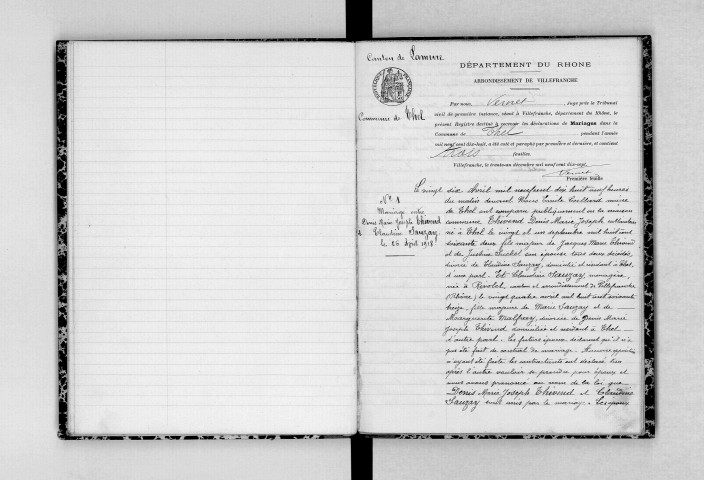 Canton de Lamure
DÉPARTEMENT DU RHONE
ARRONDISSEMENT DE VILLEFRANCHE
Commune de Thel
Par nous, Juge près le Tribunal
civil de première instance, séant à Villefranche, département du Rhône, le
présent Registre destiné à recevoir les déclarations de Mariages dans la
Commune de Thel pendant l'année
mil neuf cent dix-huit, a été coté et paraphé par première et dernière, et contient
trois feuilles.
Villefranche, le trente-un décembre mil neuf cent dix-sept
Première feuille
N° 1
Mariage entre
Denis Marie Joseph Thivend
& Claudine Sauzay
le 26 Avril 1918
Le vingt six Avril mil neuf cent dix huit neuf heures
du matin devant Nous Emile maire
de Thel ont comparu publiquement en la maison
commune Thivend Denis Marie Joseph cultivateur
né à Thel le vingt et un septembre mil huit cent
soixante deux fils majeur de Jacques Marie Thivend
et de Justine Suchel son épouse tous deux décédés,
divorcé de Claudine Sauzay, domicilié et résidant à Thel,
d'une part. Et Claudine Sauzay, ménagère,
née à Rivolet, canton et arrondissement de Villefranche
(Rhône) le vingt quatre avril mil huit cent soixante
treize, fille majeure de Marie Sauzay et de
Marguerite divorcée de Denis Marie
Joseph Thivend domiciliée et résidant à Thel
d'autre part. Les futurs époux déclarent qu'il n'a
pas été fait de contrat de mariage. Aucune opposition
n'ayant été faite les contractants ont déclaré l'un
après l'autre vouloir se prendre pour époux et
nous avons prononcé au nom de la loi que
Denis Marie Joseph Thivend et Claudine
Sauzay sont unis par le mariage.